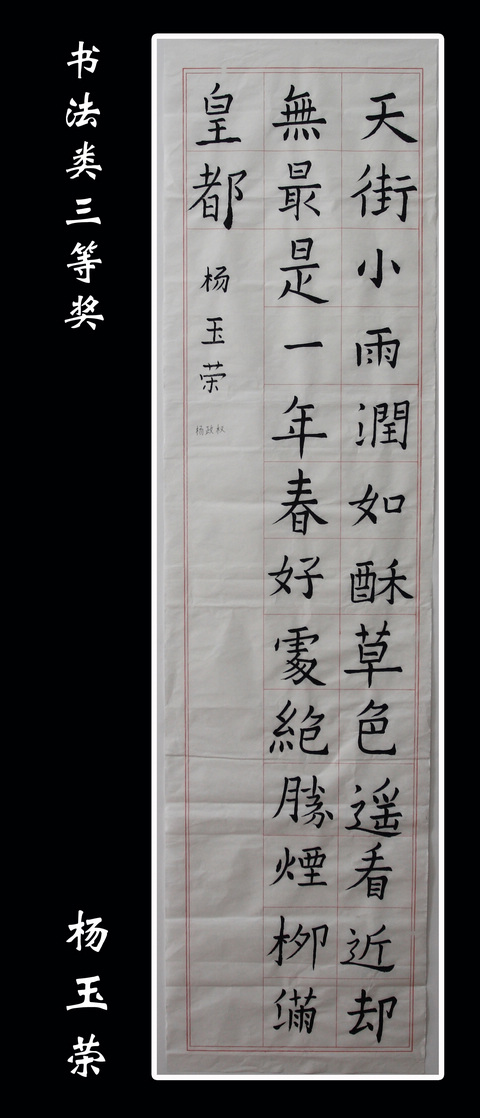 书法类三等奖
杨玉荣
天街小雨潤如酥草色遥看近却
無最是一年春好處絶勝煙柳滿
皇都
杨玉荣